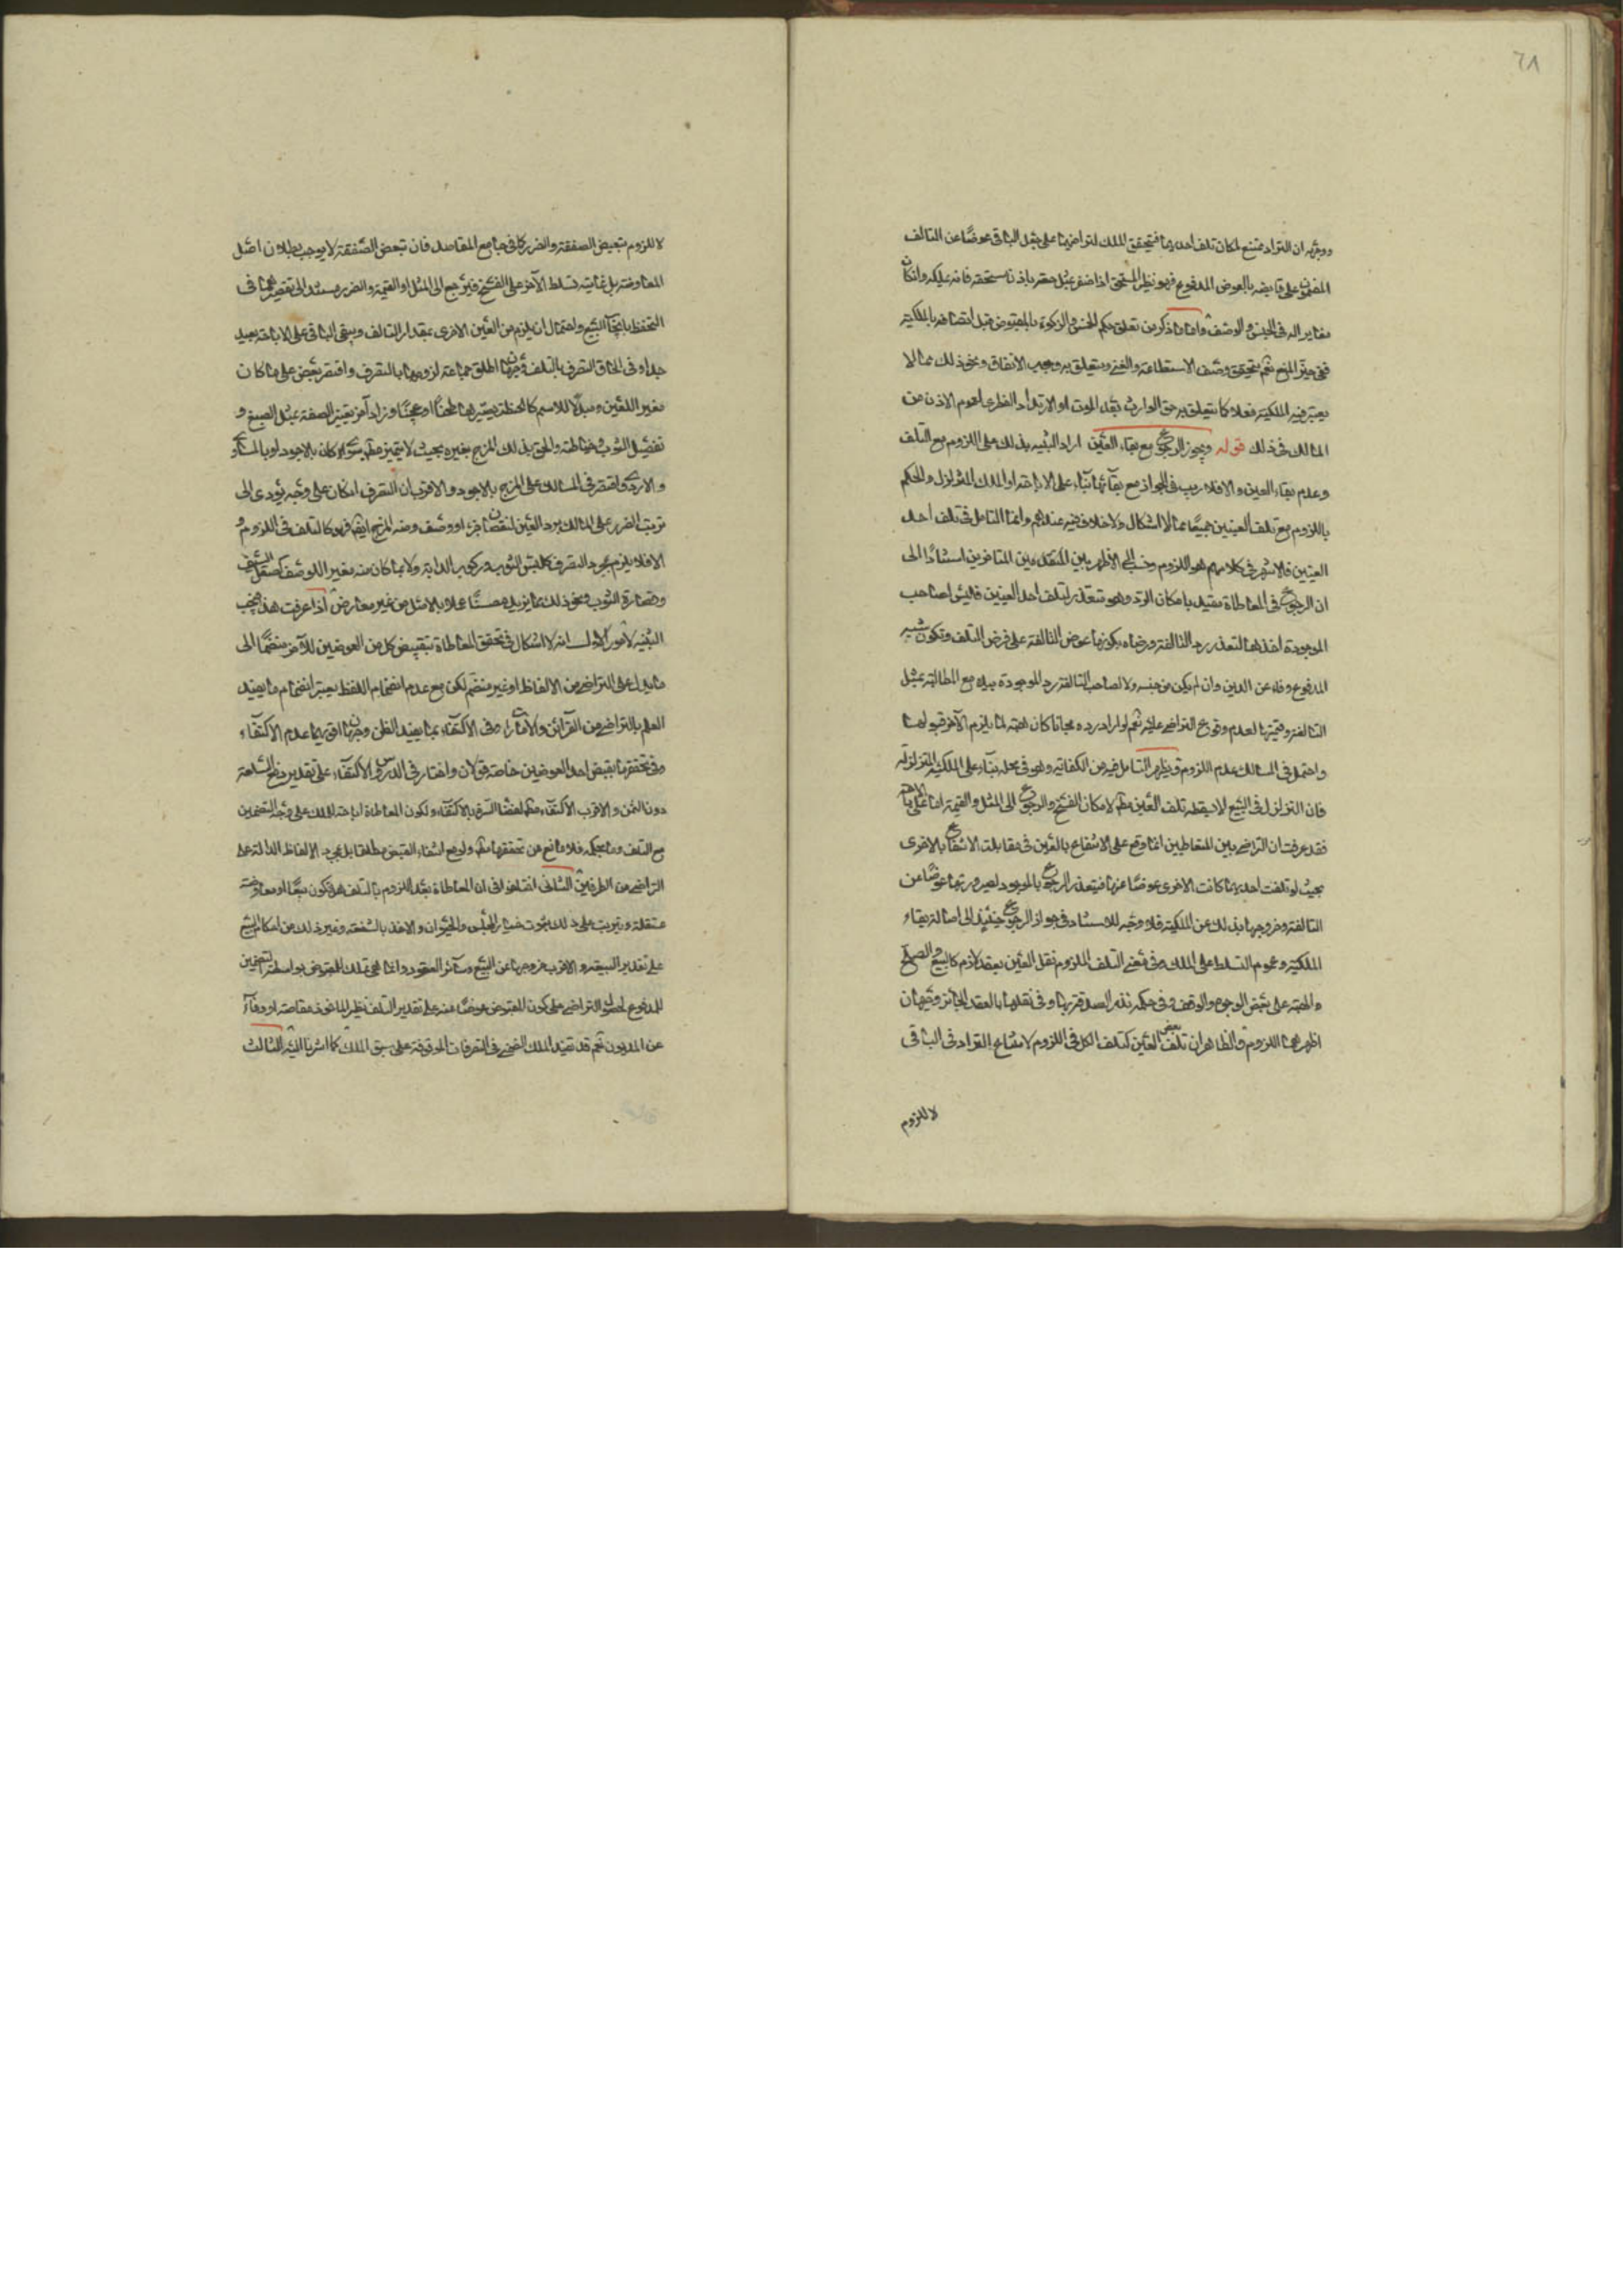 ٦٨
ووجهه ان التراد ممتنع لمكان تلف احديهما فيتحقق الملك لتراضيهما على جعل الباقى عوضًا عن التالف
المضمون على قابضه بالعوض المدفوع فهو نظير المستحق اذا ظفر بمثل حقه باذن مستحقه فانه يملكه وان كان
مغايرا له فى الجنس والوصف واما ما ذكر من تعلق حكم الخمس والزكوة بالمقبوض قبل اتصافه بالملكية
ففى حيز المنع نعم يتحقق وصف الاستطاعة والغنى ويتعلق به وجوب الانفاق ونحو ذلك مما لا
يعتبر فيه الملكية فعلا كما يتعلق به حق الوارث بعد الموت او الارتداد الفطرى لعموم الاذن من
المالك فى ذلك قوله ويجوز الرجوع مع بقاء العين اراد التنبيه بذلك على اللزوم مع التلف
وعدم بقاء العين والا فلا ريب فى الجواز مع بقائهما بناء على الاباحة او الملك المتزلزل والحكم
باللزوم مع تلف العينين جميعًا مما لا اشكال ولا خلاف فيه عندهم وانما التامل فى تلف احد
العينين فالاشهر فى كلامهم هو اللزوم ونسب الى الاظهر بين المتقدمين المتاخرين استنادًا الى
ان الرجوع فى المعاطاة مقيد بامكان الرد وهو متعذر لتلف احد العينين فاليس لصاحب
الموجودة اخذها لتعذر رد التالفة ورضاه بكونها عوض التالفة على فرض التلف وتكون شبه
المدفوع وفاء عن الدين وان لم يكن من جنسه ولا لصاحب التالفة رد الموجودة بيده مع المطالبة بمثل
التالفة وقيمتها لعدم وقوع التراضى عليه نعم لو اراد رده مجانا كان هبة لما يلزم الآخر قبولها
واحتمل فى المسالك عدم اللزوم ويظهر التامل فيه من الكفاية وهو فى محله بناء على الملكية المتزلزلة
فان التزلزل فى البيع لا يسقط بتلف العين مطلقا لامكان الفسخ والرجوع الى المثل والقيمة اما على الاباحة
فقد عرفت ان التراضى بين المتعاطيين انما وقع على الانتفاع بالعين فى مقابلة الانتفاع بالاخرى
بحيث لو تلفت احديهما كانت الاخرى عوضًا عنها فيتعذر الرجوع بالموجود لصيرورتها عوضًا عن
التالفة وخروجها بذلك عن الملكية فلا وجه للاستناد فى جواز الرجوع حينئذ الى اصالة بقاء
الملكية وعموم التسلط على الملك وفى معنى التلف الملزوم نقل العين بعقد لازم كالبيع والصلح
والهبة على بعض الوجوه والوقف وفى حكمه نذر الصدقة بها وفى نقلها بالعقد الجائز وجهان
اظهرهما اللزوم والظاهر ان تلف بعض العين كتلف الكل فى اللزوم لامتناع التراد فى الباقى
لا للزوم
لا للزوم تبعيض الصفقة والضرر كما فى جامع المقاصد فان تبعض الصفقة لا يوجب بطلان اصل
المعاوضة بل غايته تسلط الآخر على الفسخ فيرجع الى المثل او القيمة والضرر مستند الى تقصيرهما فى
التحفظ بايجاب البيع واحتمال ان يلزم من العين الاخرى بمقدار التالف ويبقى الباقى على الاباحة بعيد
جدا وفى الحاق التصرف بالتلف وجهان اطلق جماعة لزومها بالتصرف واقتصر بعض على ما كان
مغير اللعين ومبدلا للاسم كالحنطة يصيرها طحنًا او عجنًا وزاد آخر تغيير الصفة بمثل الصبغ و
تفصيل الثوب وخياطته والحق بذلك المزج بغيره بحيث لا يتميز مطلقا سواء كان بالاجود او بالمساوى
والاردى واقتصر فى المسالك على المزج بالاجود والاقرب ان التصرف ان كان على وجه يؤدى الى
ترتب الضرر على المالك برد العين لنقصان جزء او وصف ومنه المزج ايضا فهو كالتلف فى اللزوم و
الا فلا يلزم بمجرد التصرف كلبس الثوب وركوب الدابة ولا بما كان منه مغير اللوصف كصقل السيف
وقصارة الثوب ونحو ذلك مما يزيده حسنًا عملا بالاصل من غير معارض اذا عرفت هذا فيجب
التنبيه لامور الاول انه لا اشكال فى تحقق المعاطاة بتقبيض كل من العوضين للآخر منضمًا الى
ما يدل على التراضى من الالفاظ او غير منضم لكن مع عدم انضمام اللفظ يعتبر انضمام ما يفيد
العلم بالتراضى من القرائن والامارات وفى الاكتفاء بما يفيد الظن وجهان اقويهما عدم الاكتفاء
وفى تحققها بقبض احد العوضين خاصة قولان واختار فى الدروس الاكتفاء على تقدير دفع السلعة
دون الثمن والاقرب الاكتفاء مطلقا لاقتضاء السيرة بالاكتفاء ولكون المعاطاة اباحة للملك على وجه التضمين
مع التلف وما بحكمه فلا مانع من تحققها مطلقا ولو مع انتفاء القبض مطلقا بل بمجرد الالفاظ الدالة على
التراضى من الطرفين الثانى اختلفوا فى ان المعاطاة بعد اللزوم بالتلف هل تكون بيعًا او معاوضة
مستقلة ويترتب على ذلك ثبوت خيار المجلس والحيوان والاخذ بالشفعة وغير ذلك من احكام البيع
على تقدير البيعية والاقرب خروجها عن البيع وسائر العقود وانما هى تملك المقبوض بواسطة التضمين
المدفوع لحصول التراضى على كون المقبوض عوضًا عنه على تقدير التلف نظير الماخوذ مقاصة او وفاء
عن المديون نعم قد تفيد الملك الضمنى فى التصرفات الموقوفة على سبق الملك كما اشرنا اليه الثالث